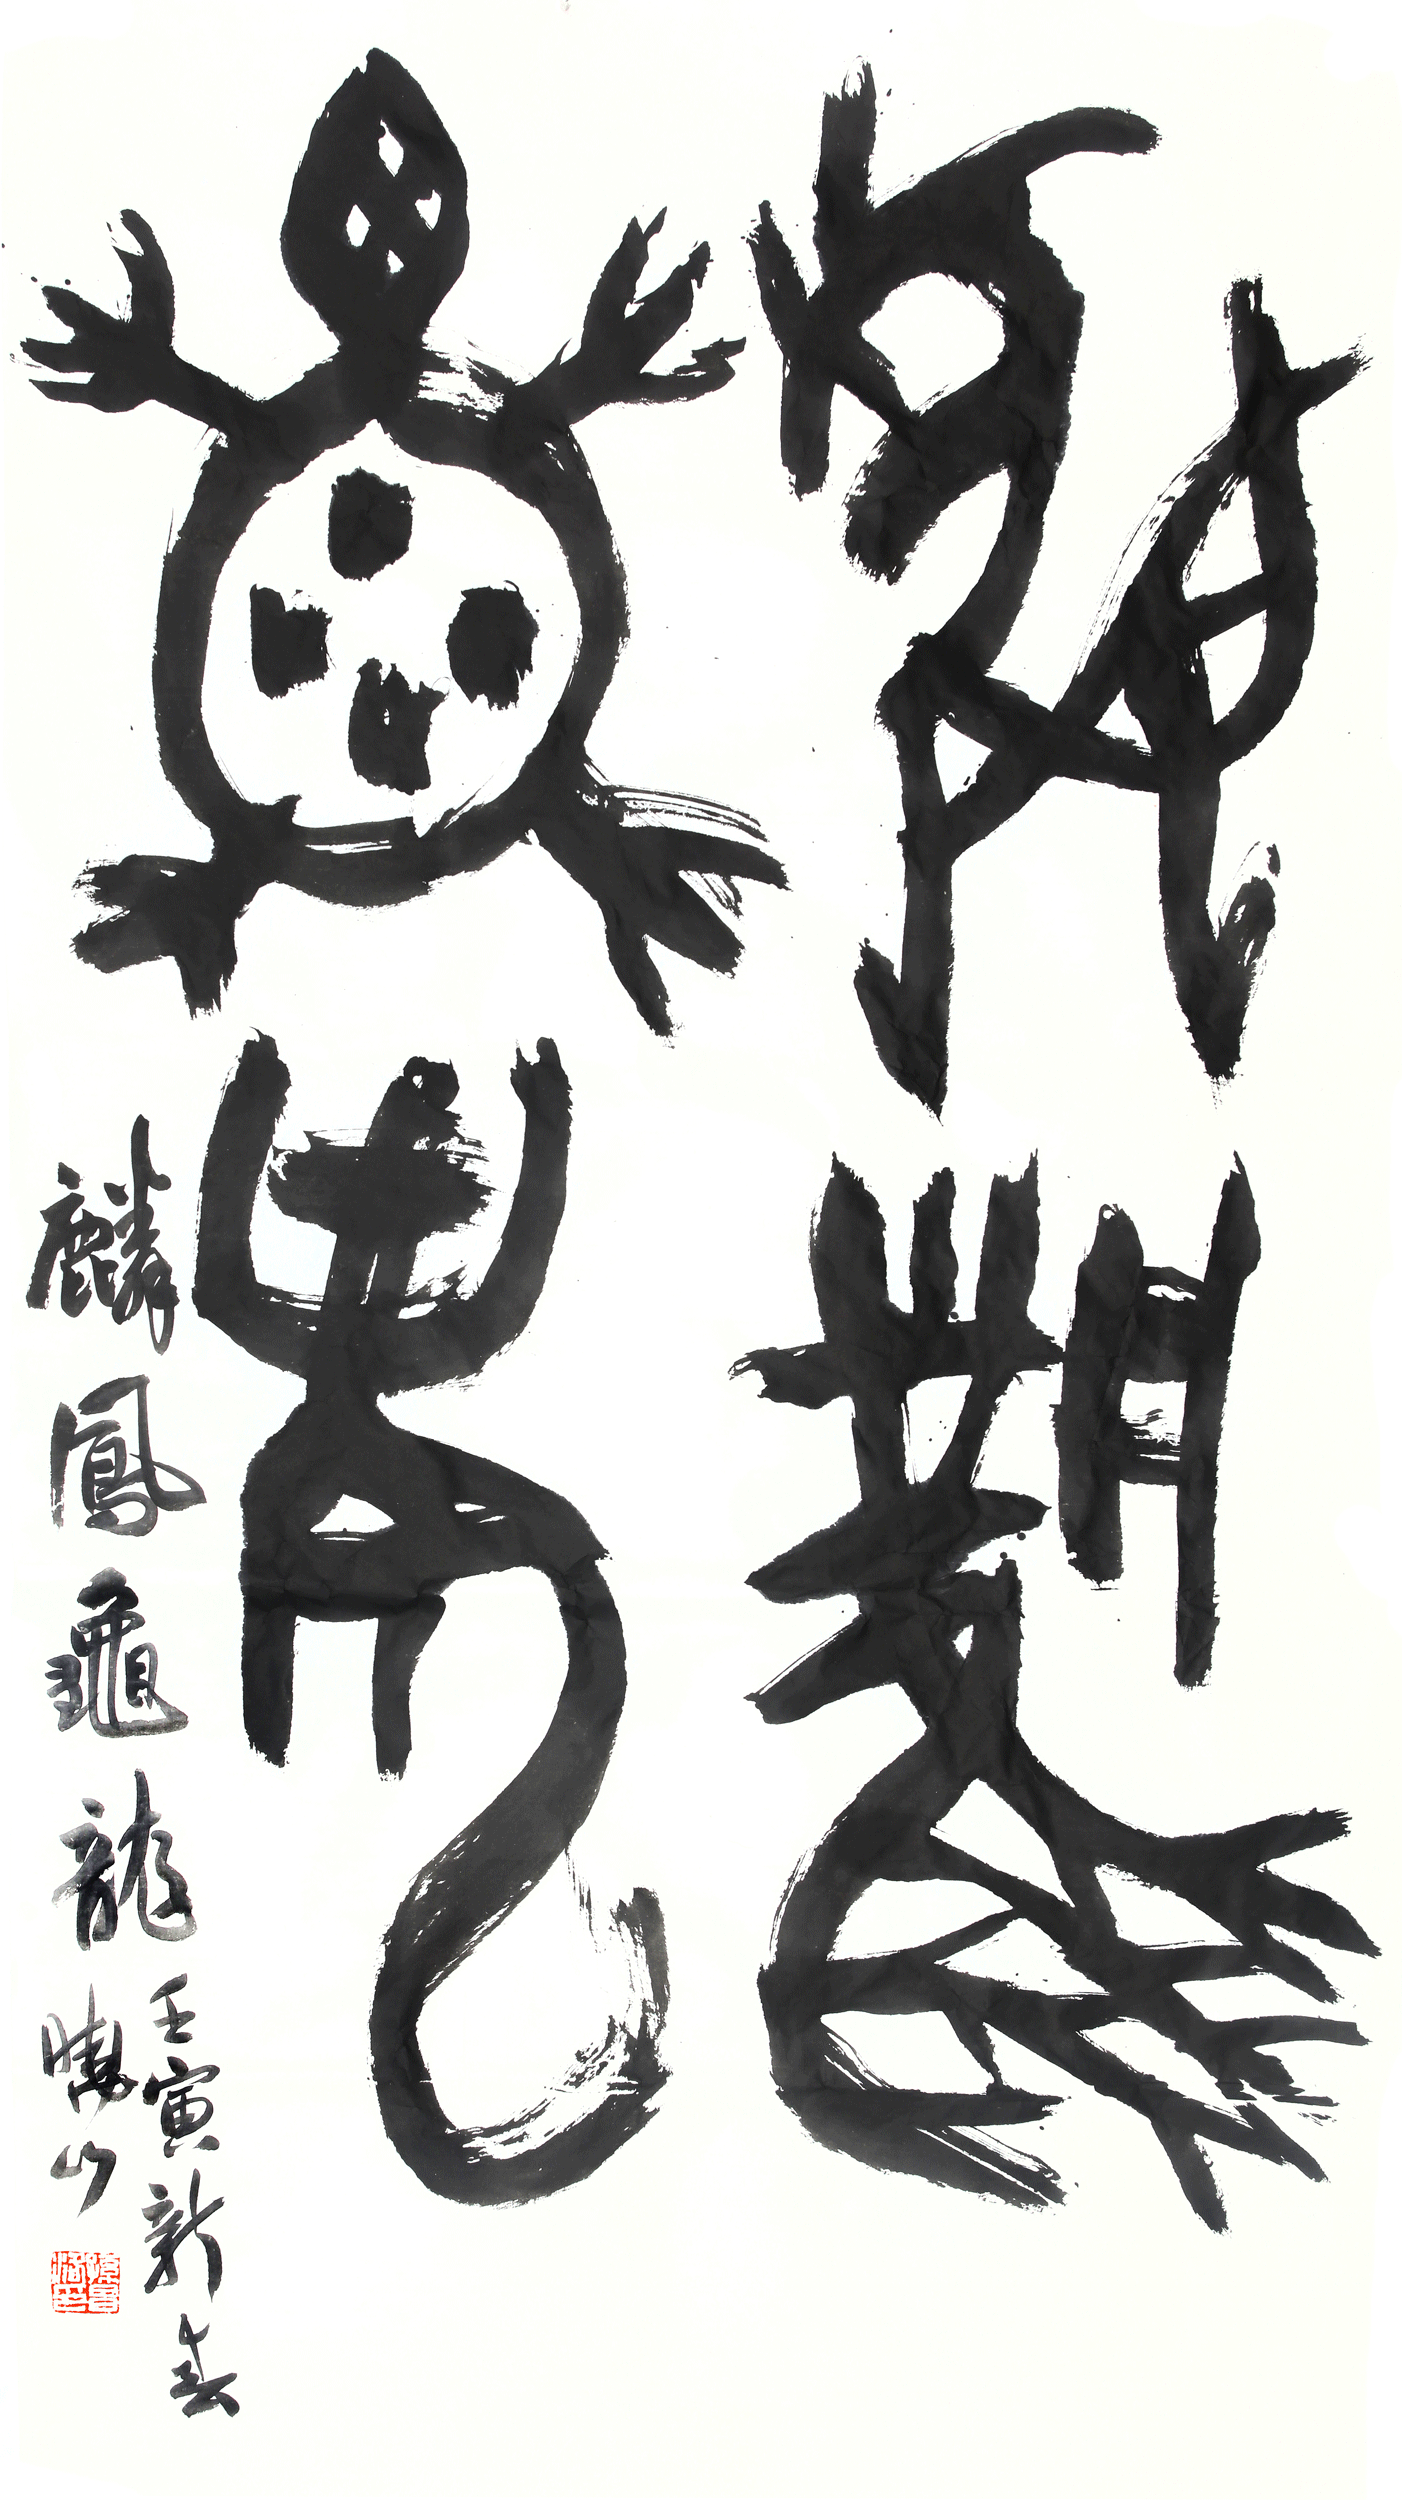 麟鳳
龜龍
麟鳳龜龍
壬寅新春
曉山